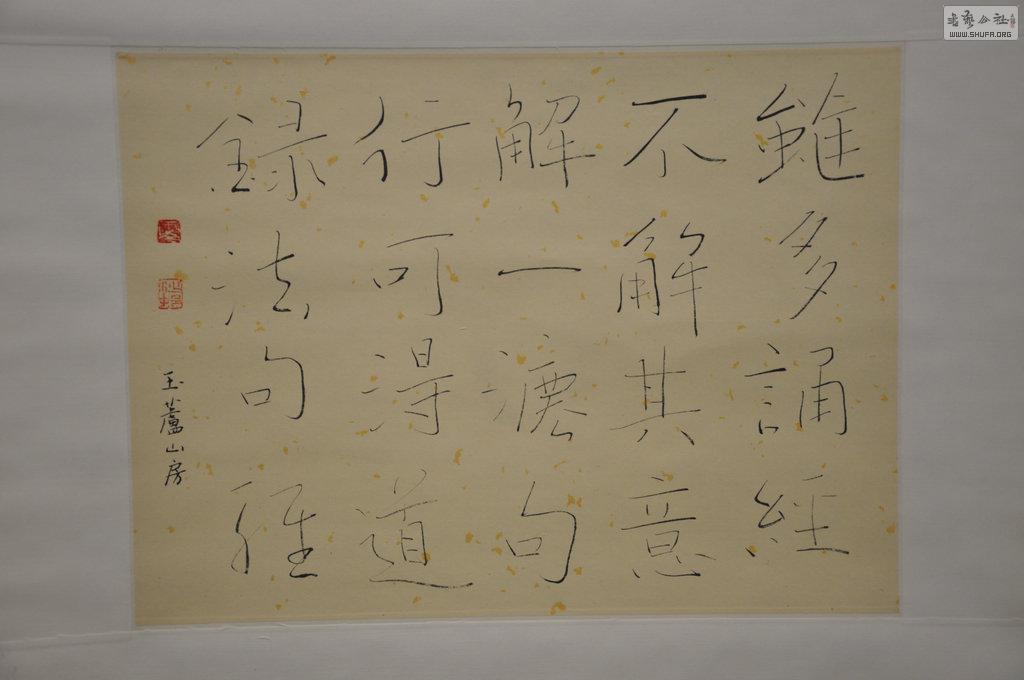 雖多誦經
不解其意
解一灋句
行可得道
録法句經
玉蘆山房
書藝公社
WWW.SHUFA.ORG